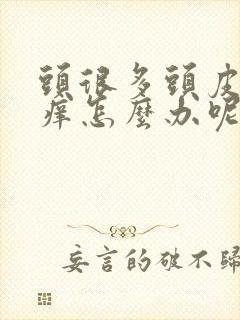 頭很多頭皮
痒怎麼办呢
妄言的破不歸